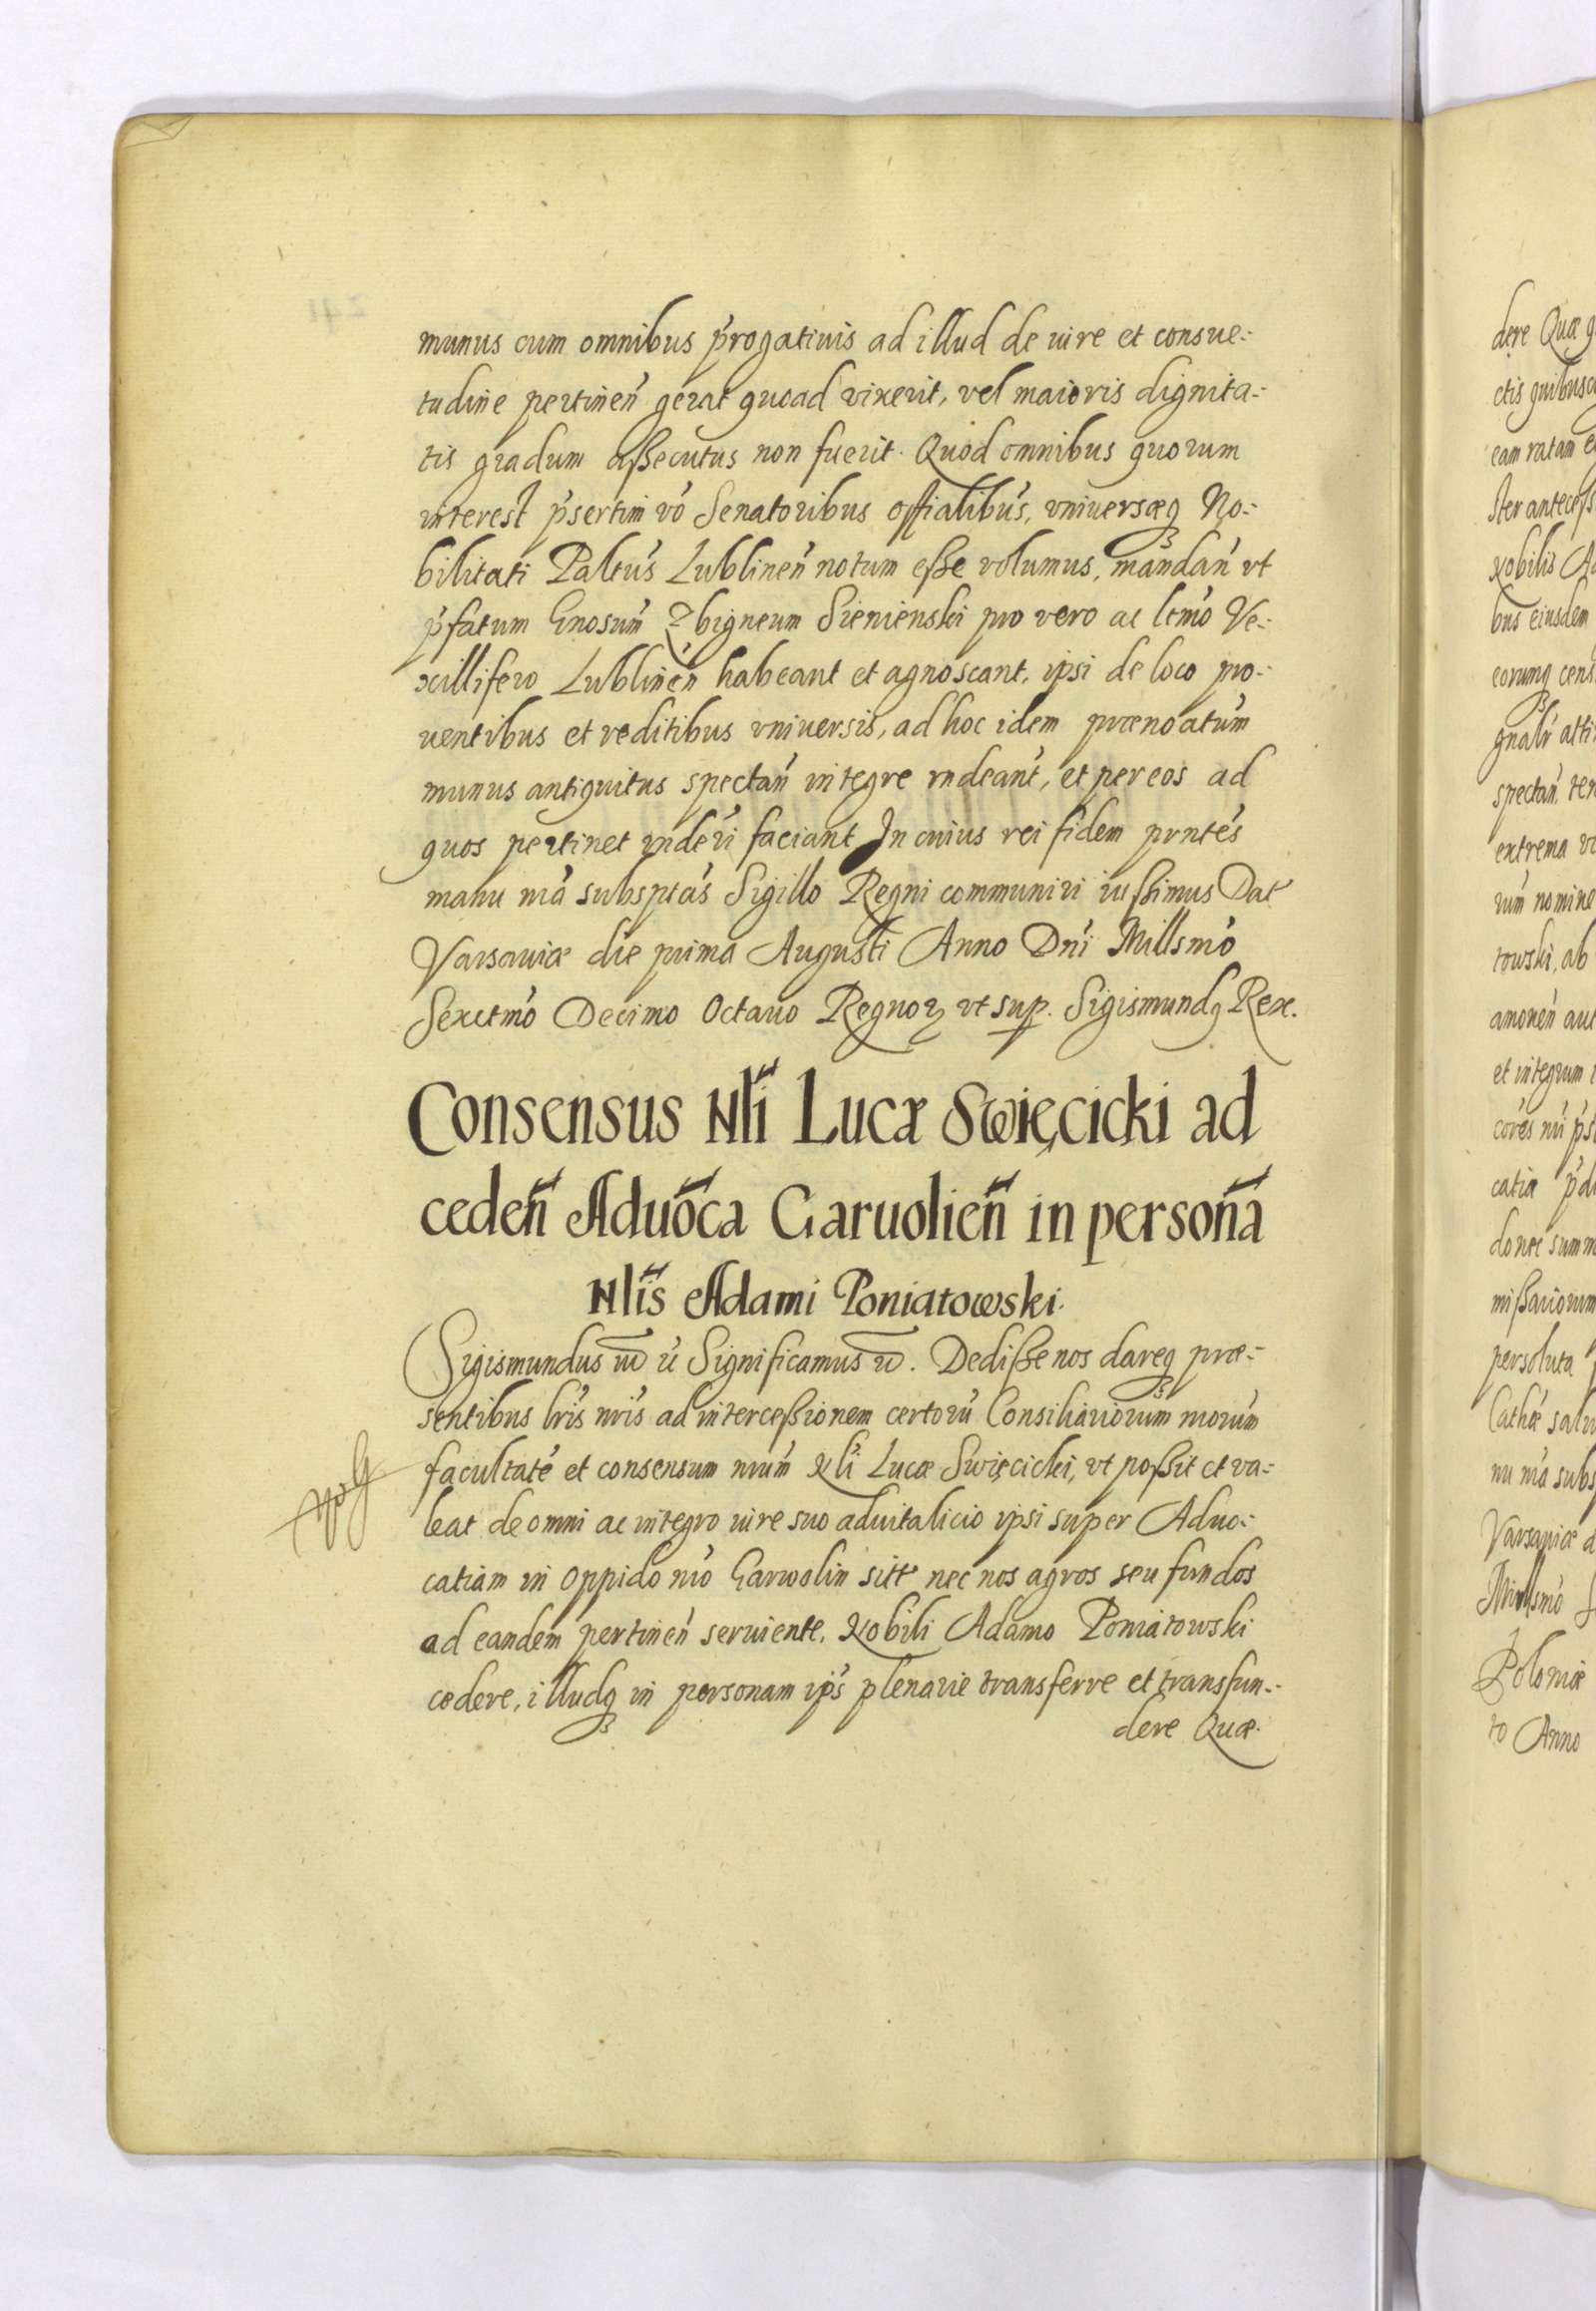 munus cum omnibus p̃rogatiuis ad illud de iure et consue-
tudine pertineñ gerat quoad vixerit, vel maioris dignita-
tis gradum aßecutus non fuerit. Quod omnibus quorum
interest p̃sertim vo͂ Senatoribus offialibus, vniuersæq No-
bilitati Paltus Lublineñ notum eße volumus, mandañ vt
p̃fatum Gnosum Zbigneum Sienienski pro vero ac ltmo Ve-
xillifero Lublineñ habeant et agnoscant, ipsi de loco pro-
uentibus et reditibus vniuersis, ad hoc idem prænoatum
munus antiquitus spectañ integre rndeant, et per eos ad
quos pertinet rnderi faciant In cuius rei fidem pnntes
manu nrã subsptas Sigillo Regni communiri iußimus Dat
Varsauiæ die prima Augusti Anno Dni Millsmo
Sexctmo Decimo Octauo Regnoꝝ vt sup. Sigismundq Rex.
Consensus Nli͂ Lucæ Swięcicki ad
cedeñ Aduo͂ca Garuolieñ in persoña
Nli͂s Adami Poniatowski.
Sigismundus Significamus. Dediße nos dareq præ-
sentibus lris nris ad interceßionem certoru͂ Consiliariorum nrorum
facultate͂ et consensum nrum Nli Lucæ Swięcicki, vt poßit et va-
leat de omni ac integro iure suo aduitalicio ipsi super Aduo-
catiam in Oppido nro Garwolin sitt nec nos agros seu fundos
ad eandem pertineñ seruiente, Nobili Adamo Poniatowski
cedere, illudq in personam ips plenarie transferre et transfun-
dere Quæ
dere Quæ
ctis quibusc
eam ratam
ster anteceß
Nobilis
bus eiusdem
eorumq
gnalr
spectañ
extrema
rum nomine
towski, ab
amoueñ
et integrum
cores
catia
donec
mißariorum
persoluta
Cathæ
nu nrã subs
Varsauiæ
Millsmo
Poloniæ
to Anno